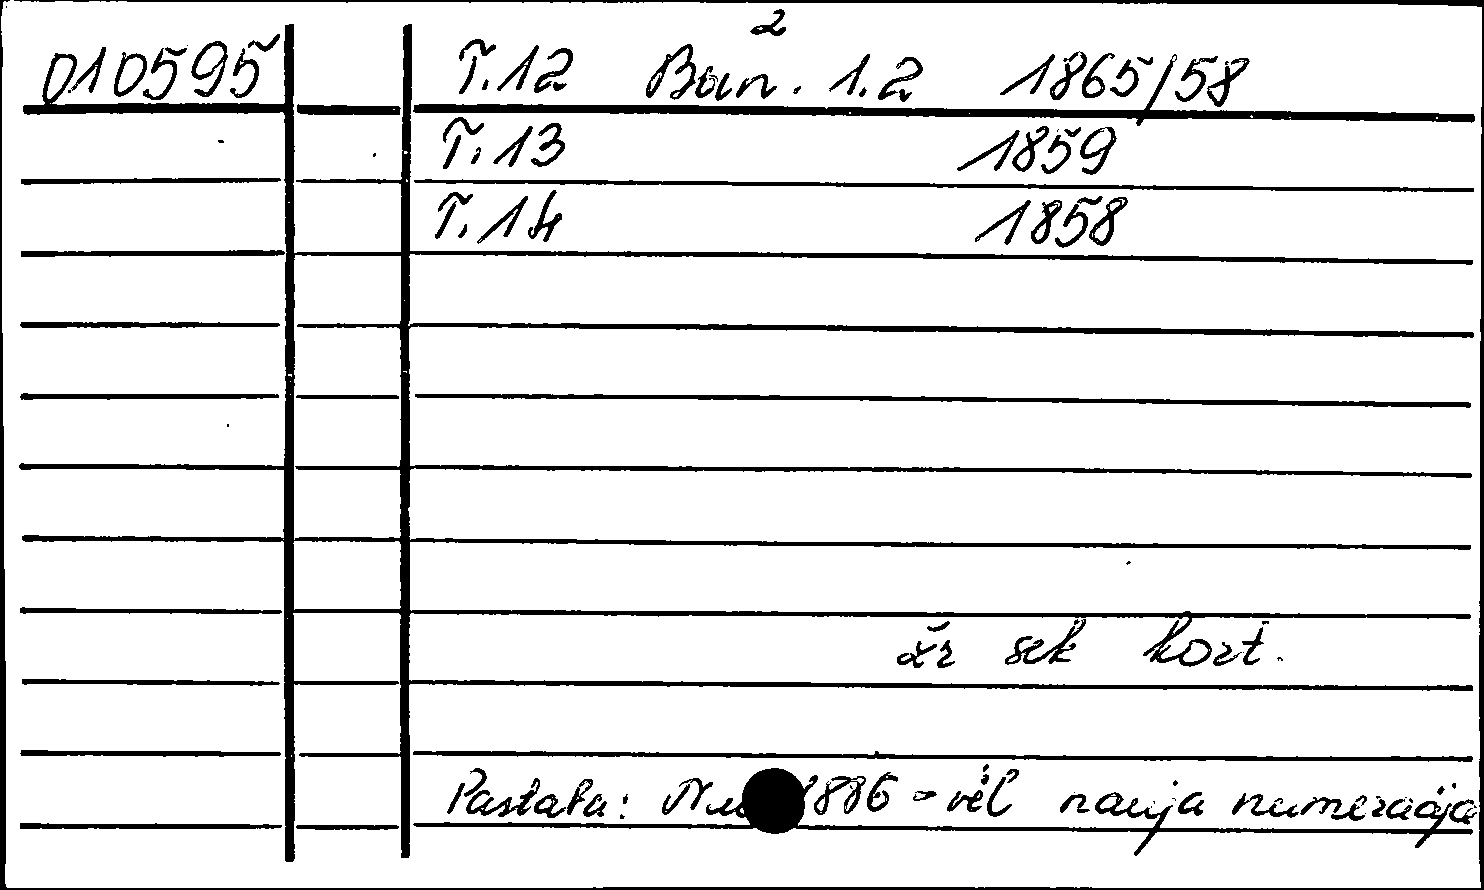 2
010595 T.12 Ban. 1.2 1865/58
T.13 1859
T.14 1858
žr sek kort.
Pastaba: Nu 1886 - vėl nauja numeracija